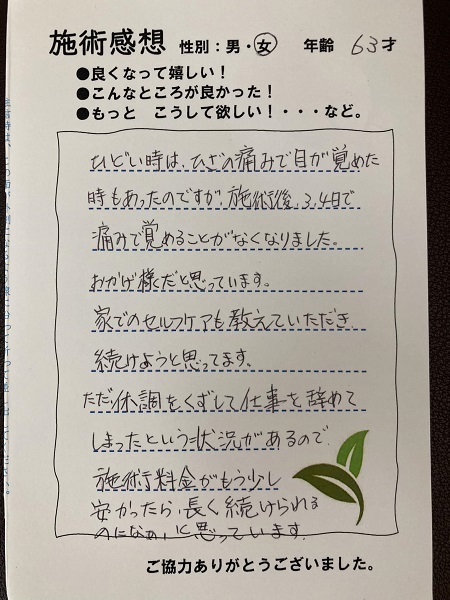 施術感想 性別：男・女 年齢 63才
●良くなって嬉しい！
●こんなところが良かった！
●もっと こうして欲しい！・・・など。
ひどい時は、ひざの痛みで目が覚めた
時もあったのですが、施術後、3、4日で
痛みで覚めることがなくなりました。
おかげ様だと思っています。
家でのセルフケアも教えていただき、
続けようと思ってます。
ただ体調をくずして仕事を辞めて
しまったという状況があるので、
施術料金がもう少し
安かったら、長く続けられる
のになぁ、と思っています。
ご協力ありがとうございました。